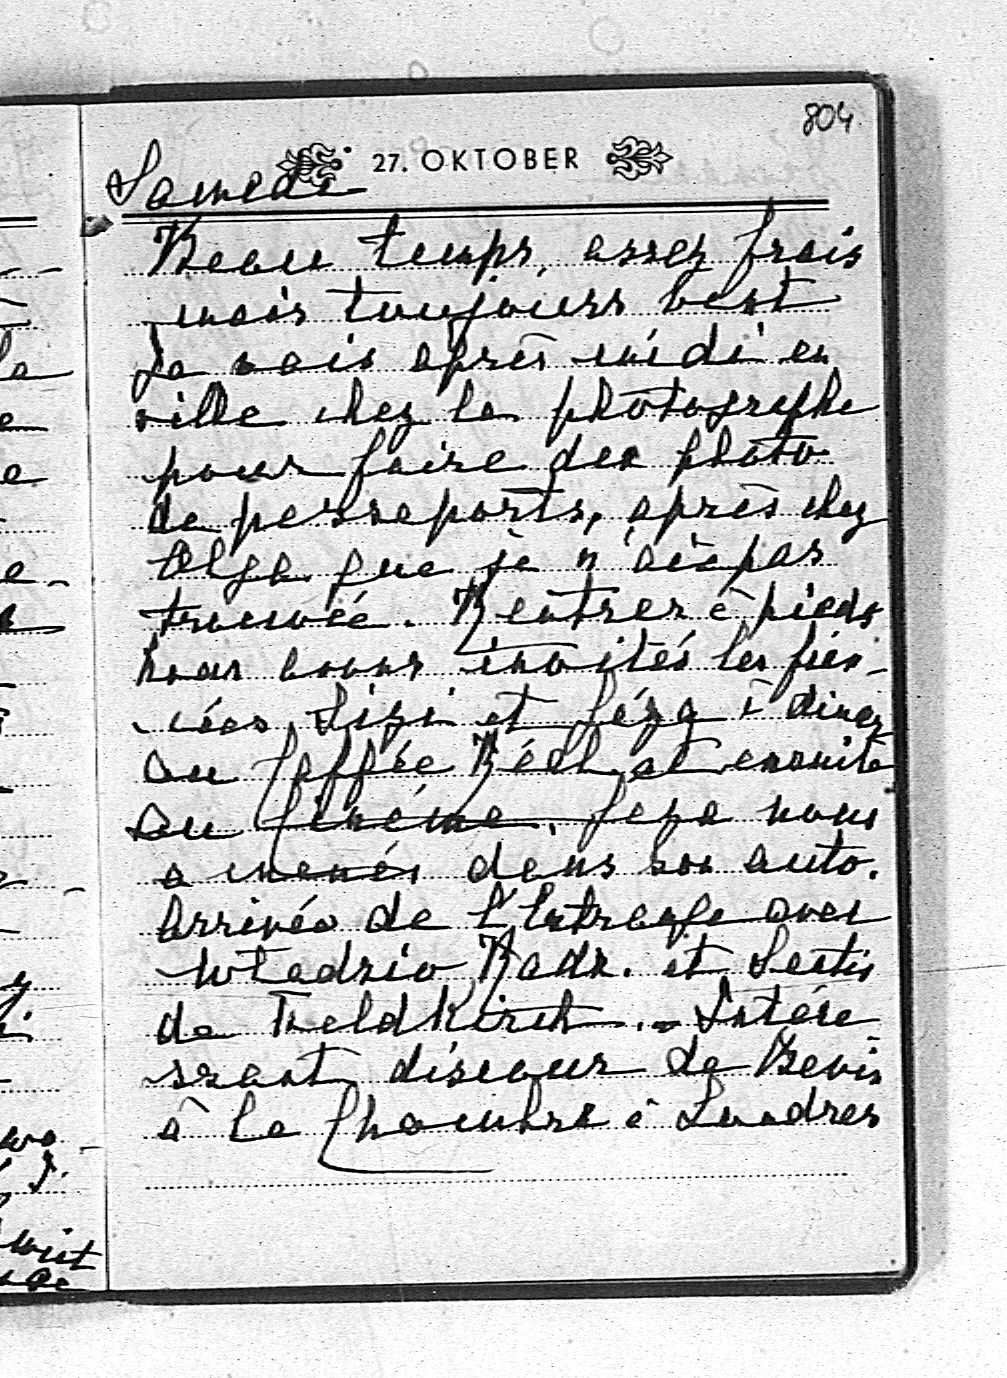 804
27. OKTOBER
Samedi
Beau temps, assez frais
mais toujours beau
Je vais après midi en
ville chez le photographe
pour faire des photo
de passeports, après chez
Olga que je n'ai pas
trouvée. Rentrer à pieds
nous avons invités les fian-
cées Lizi et Géza à diner
au Caffée et ensuite
au Cinéma. Geza nous
a menés dans son auto.
Arrivée de avec
et
de Feldkirch. Intére
ssant discour de Bevin
à la Chambre à Londres